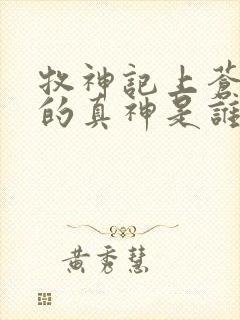 牧神記上蒼
的真神是誰
黃秀慧